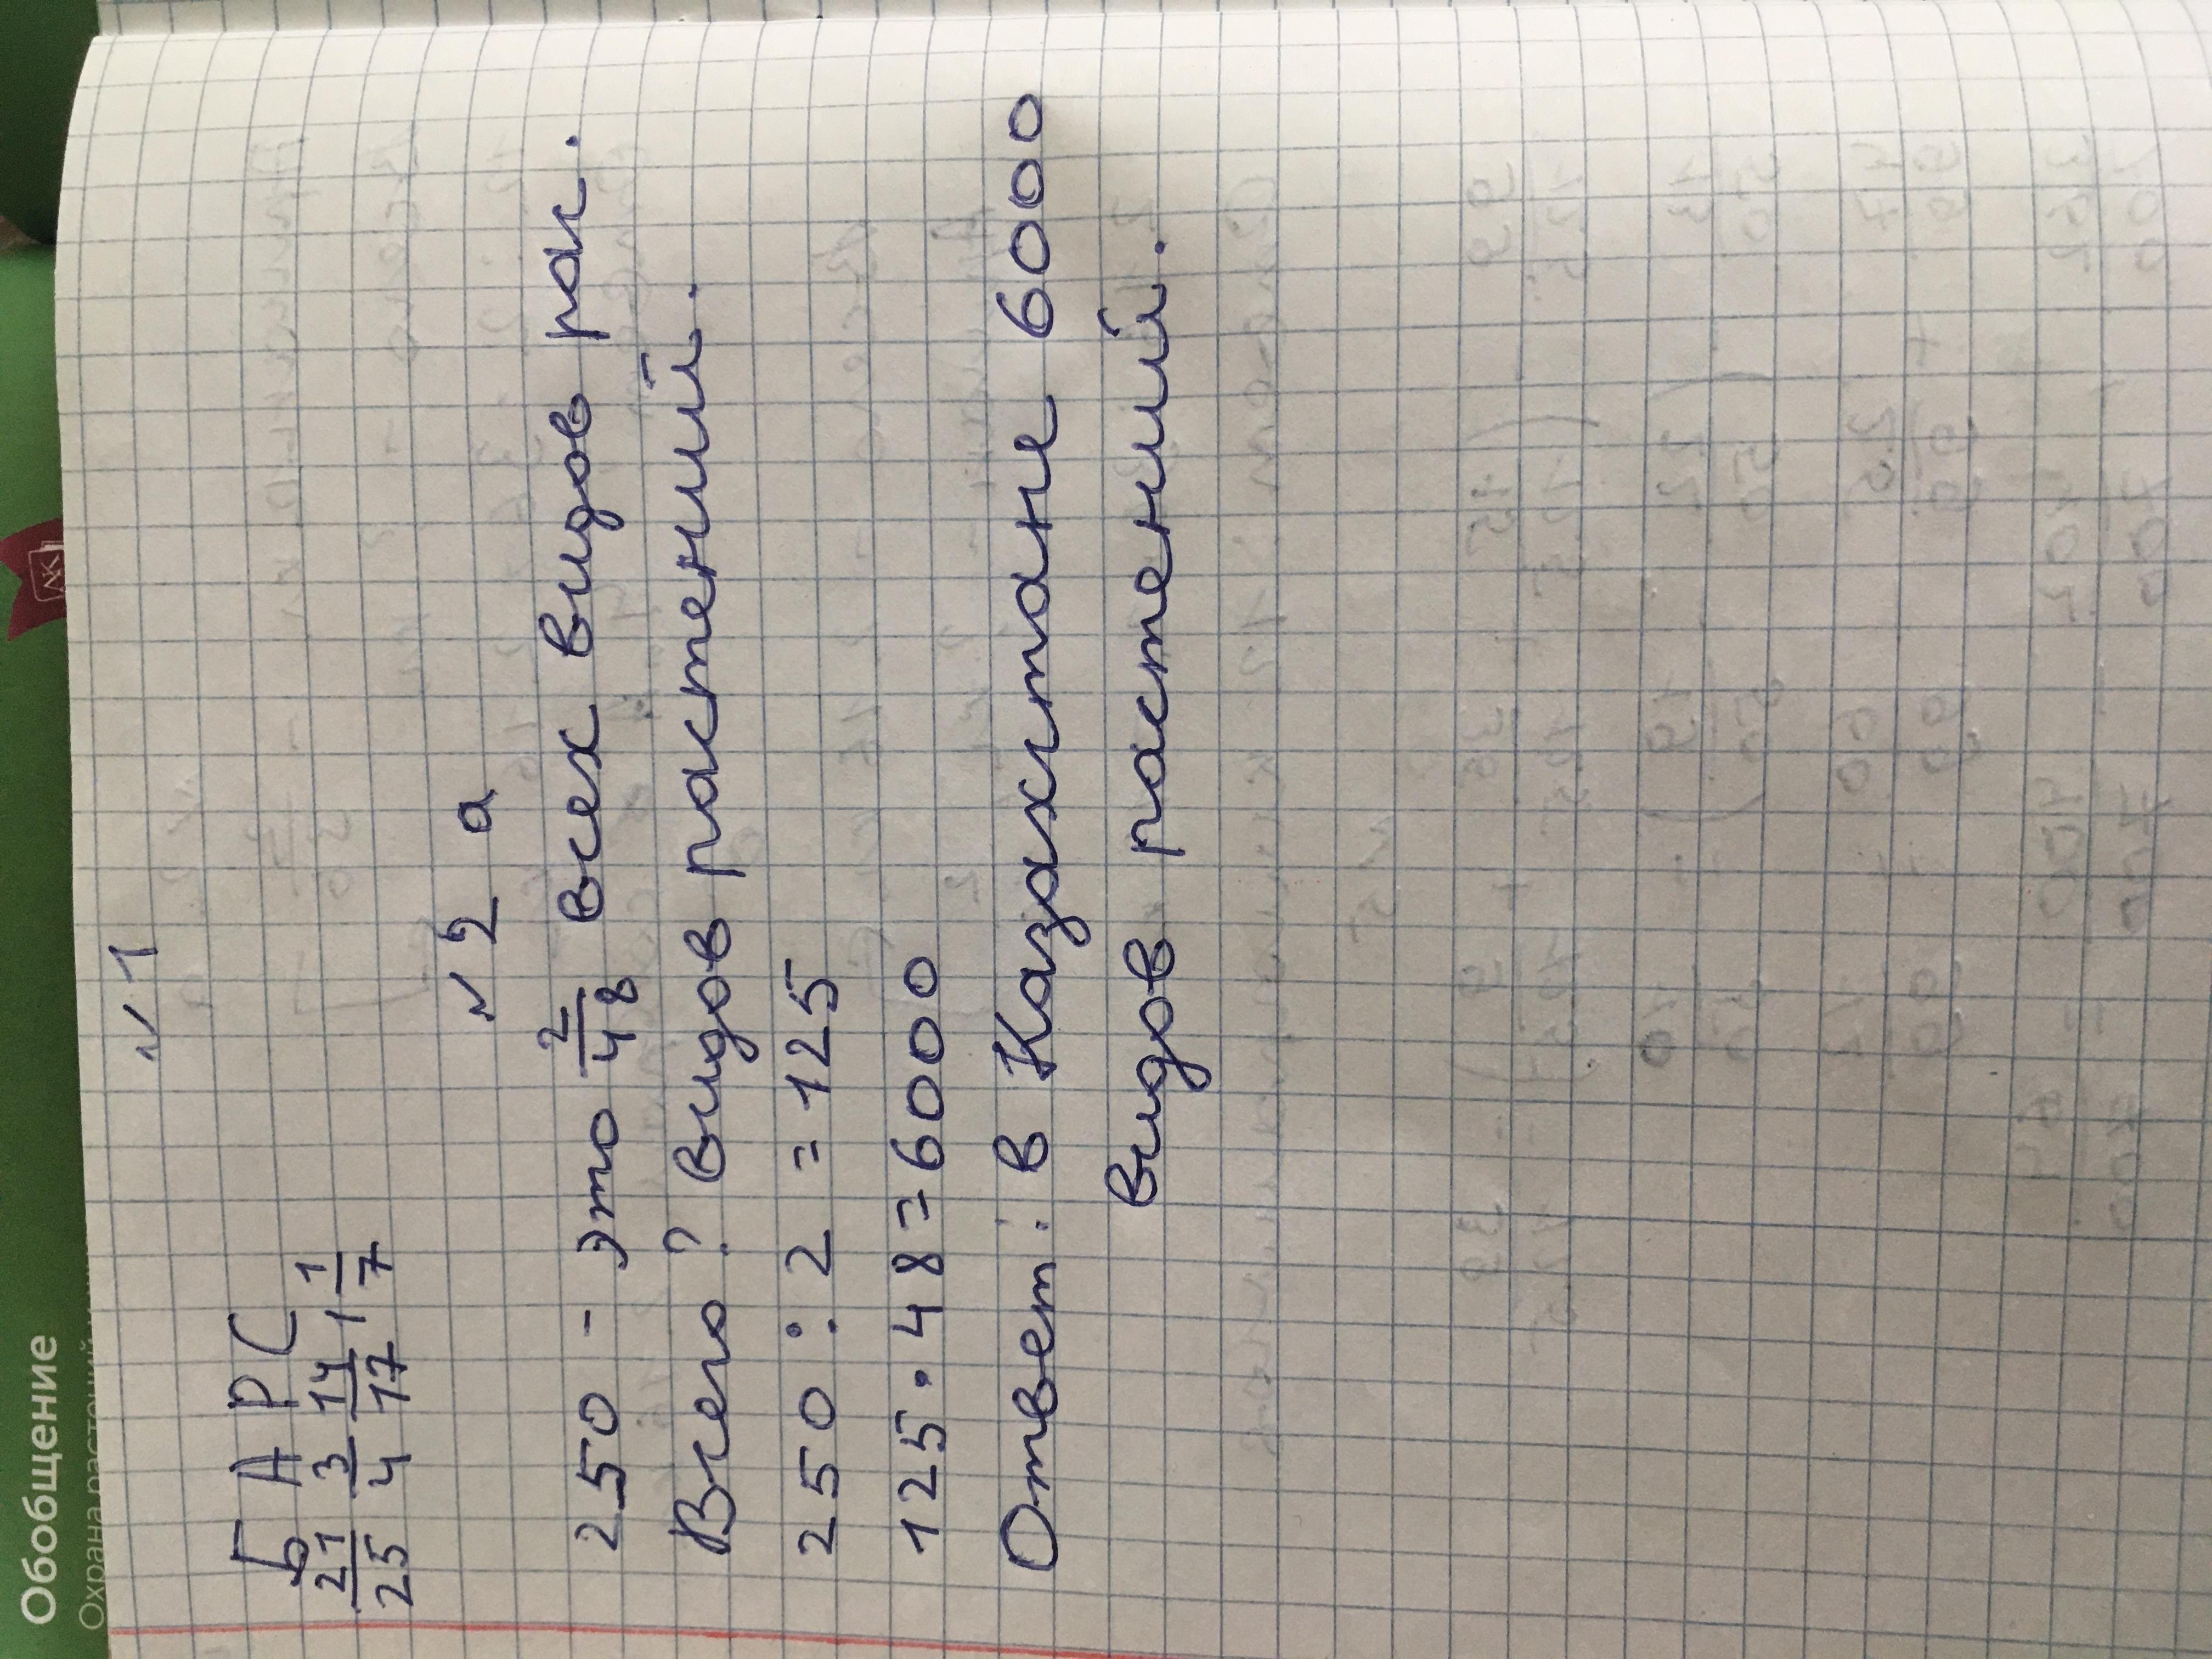 Обобщение
Охрана растений
№ 1
Б А Р С
21/25 3/4 14/17 1 1/7
№ 2 а
250 - это 2/48 всех видов рас.
Всего ? видов растений.
250 : 2 = 125
125 · 48 = 6000
Ответ: в Казахстане 6000
видов растений.